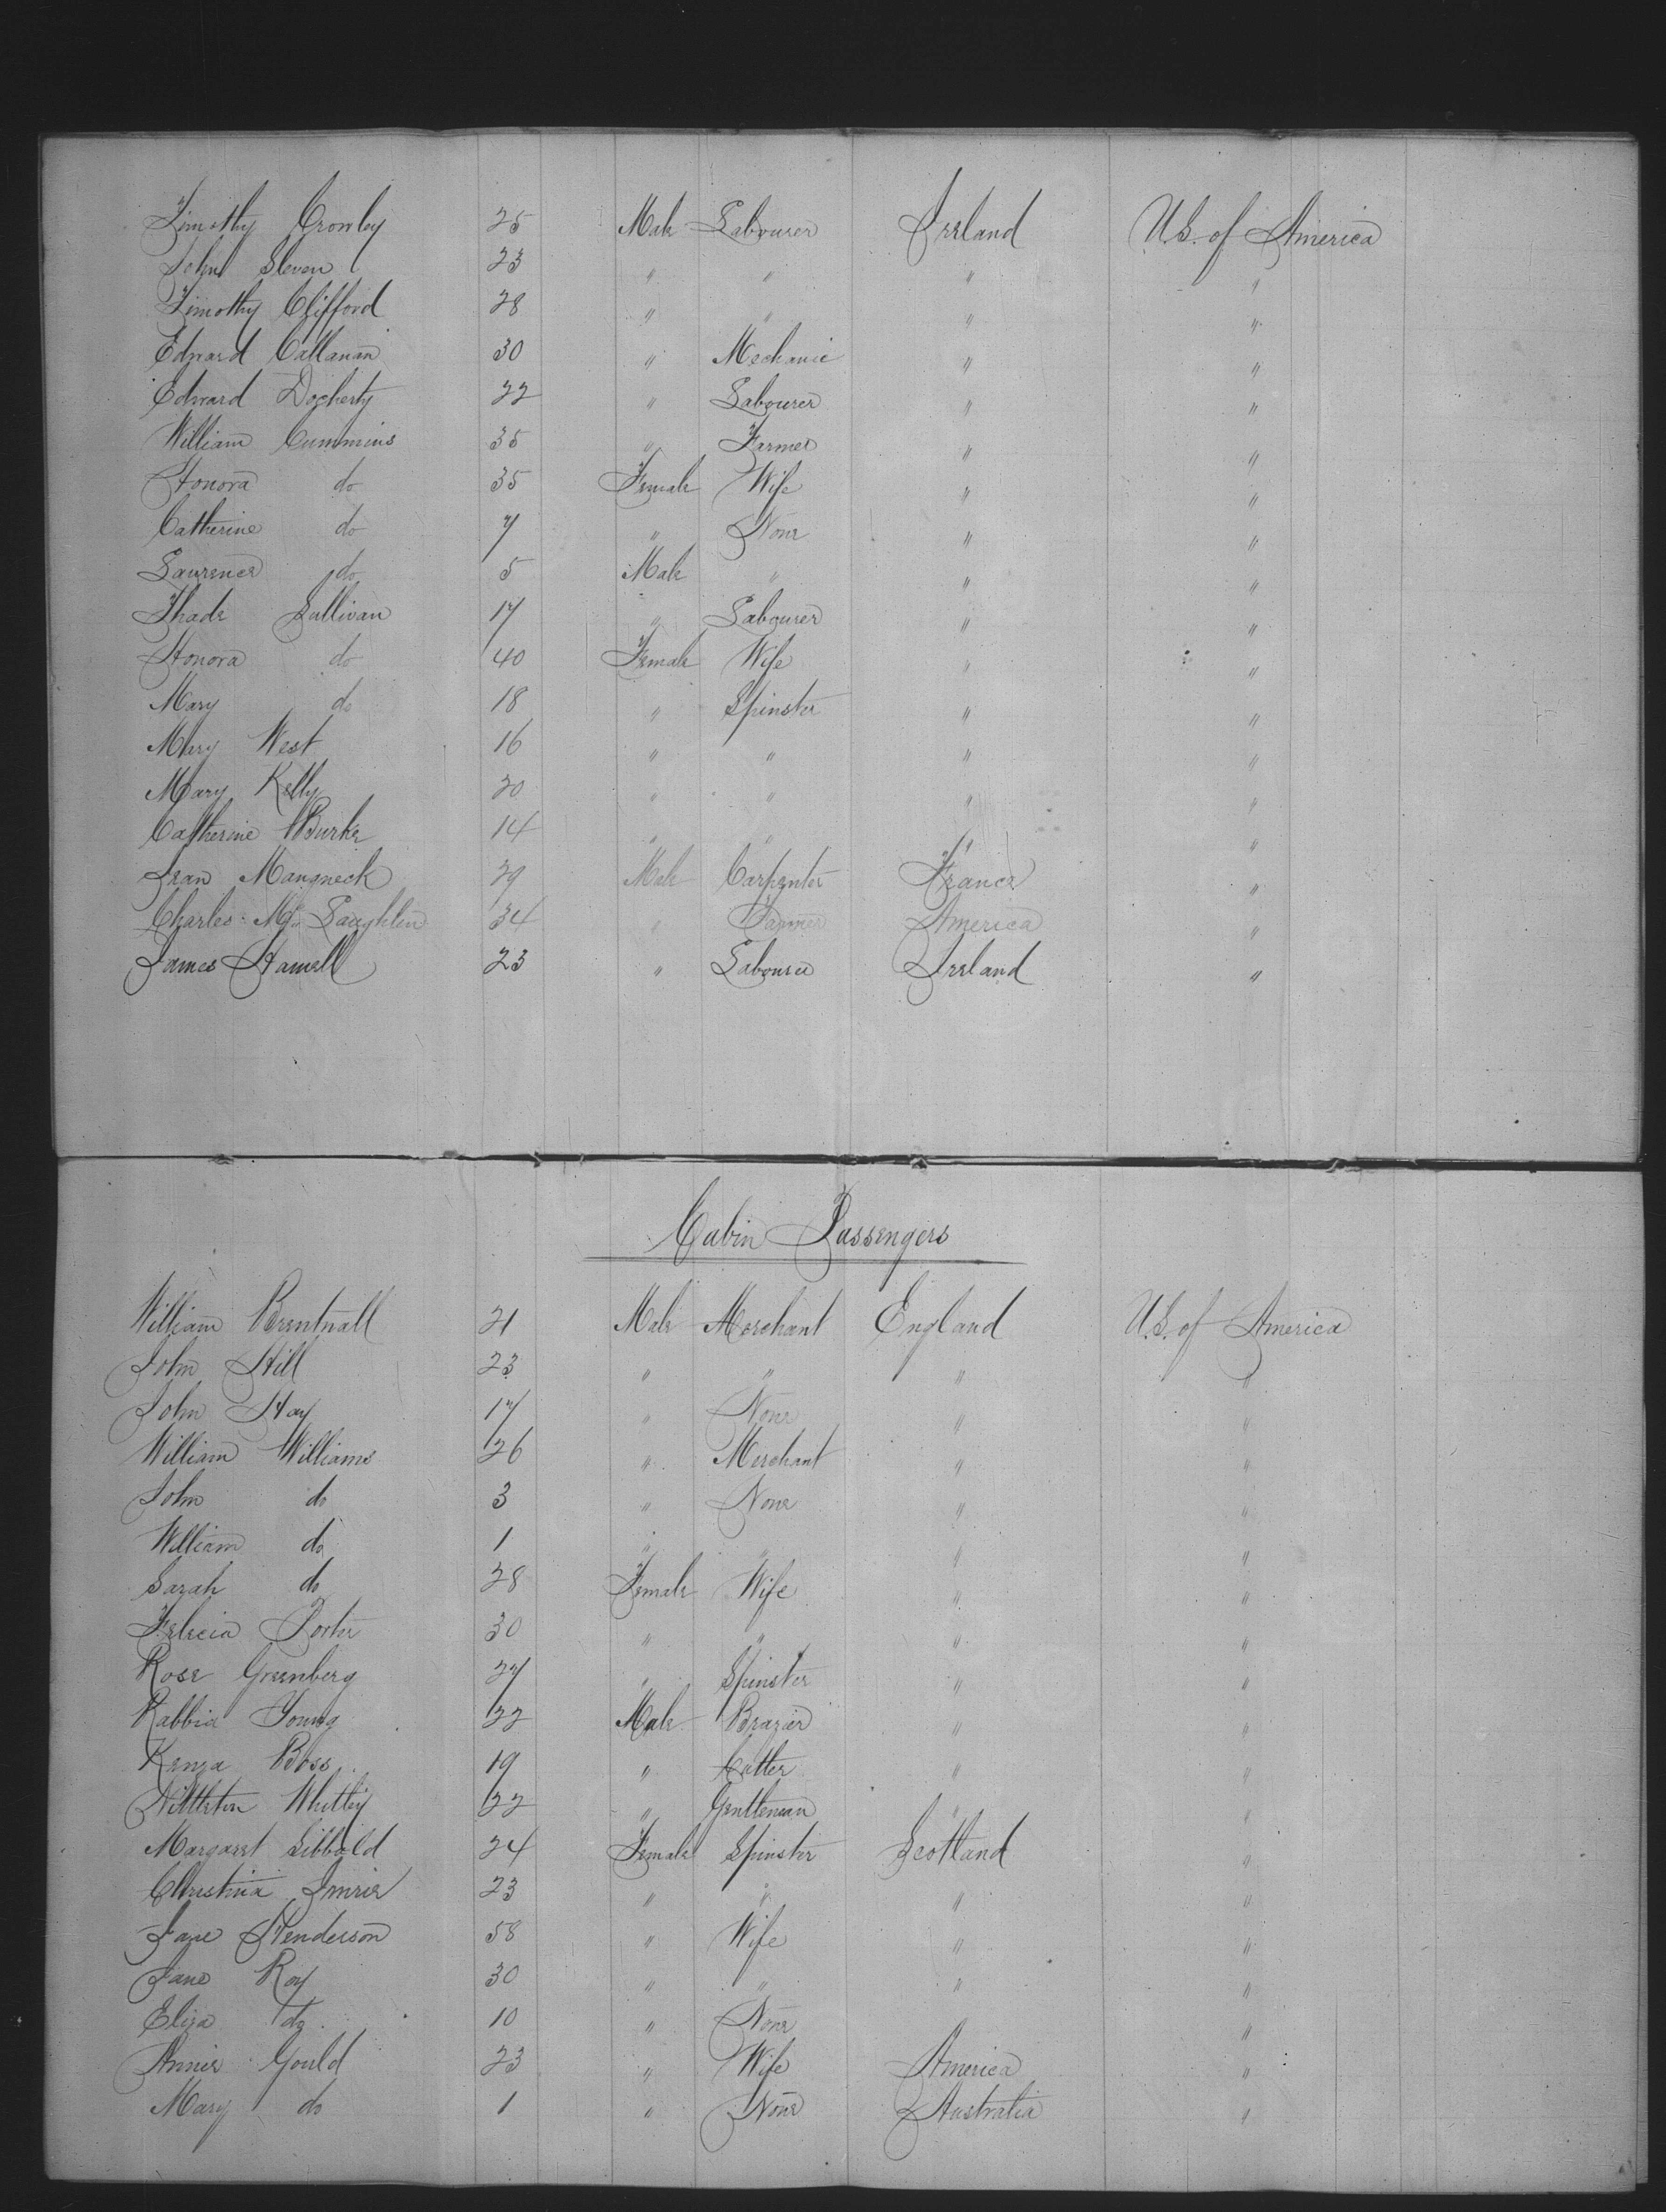 Timothy Crowley 25 Male Labourer Ireland U.S. of America
John Sleven 23 " " " "
Timothy Clifford 28 " " " "
Edward Callanan 30 " Mechanic " "
Edward Docherty 22 " Labourer " "
William Cummins 35 " Farmer " "
Honora do 35 Female Wife " "
Catherine do 7 " None " "
Laurence do 5 Male " " "
Thade Sullivan 17 " Labourer " "
Honora do 40 Female Wife " "
Mary do 18 " Spinster " "
Mary West 16 " " " "
Mary Kelly 20 " " " "
Catherine Burke 14 " " " "
Jean Mangneck 29 Male Carpenter France "
Charles Mc Laughlin 34 " Farmer America "
James Hamell 23 " Labourer Ireland "
Cabin Passengers
William Brentnall 21 Male Merchant England U.S. of America
John Hill 23 " " " "
John Hay 17 " None " "
William Williams 26 " Merchant " "
John do 3 " None " "
William do 1 " " " "
Sarah do 28 Female Wife " "
Felecia Porter 30 " " " "
Rose Greenberg 27 " Spinster " "
Rabbia Young 22 Male Brazier " "
Kenza Boss 19 " Cutter " "
Whitley 22 " Gentleman " "
Margaret Sibbald 24 Female Spinster Scotland "
Christina Imrie 23 " " " "
Jane Henderson 58 " Wife " "
Jane Roy 30 " " " "
Eliza do 10 " None "
Annie Gould 23 " Wife America "
Mary do 1 " None Australia "